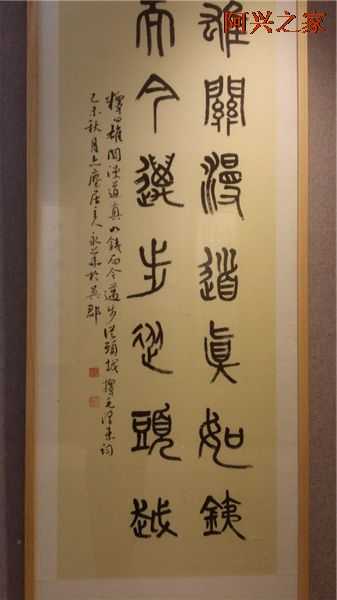 阿兴之家
雄關漫道真如銕
而今邁步從頭越
釋曰雄関漫道真如銕而今邁步從頭越 擇毛澤東詞
乙未秋月居主人永華於吳郡